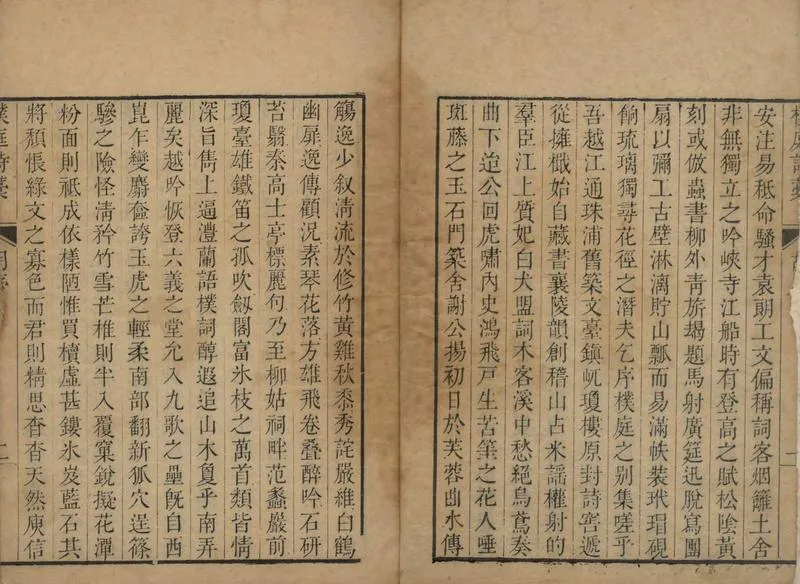 安注易秪命騷才袁朗工文偏稱詞客烟籬土舍
非無獨立之吟峽寺江船時有登高之賦松陰黃
刻或倣蟲書柳外靑旂朅題馬射廣筵迅脫寫團
扇以彌工古壁淋漓貯山瓢而易滿帙裝玳瑁硯
餉琉璃獨尋花徑之潛夫乞序樸庭之别集嗟乎
吾越江通珠浦舊築文臺鎭岏瓊樓原封詩窖遞
從擁檝始自藏書襄陵韻創稽山占米謠權射的
羣臣江上質妃白犬盟詞木客溪中愁絕烏鳶奏
曲下迨公回虎嘯内史鴻飛戸生苦之花人唾
斑藤之玉石門築舍謝公揚初日於芙蓉曲水傳
觴逸少叙淸流於修竹黃雞秋黍秀詫嚴維白鶴
幽扉逸傳顧況素琴花落方雄飛卷疊醉吟石硏
苔翳秦高士亭標麗句乃至柳姑祠畔范蠡巖前
瓊臺雄鐵笛之孤吹劔閣富氷枝之萬首類皆情
深旨雋上逼澧蘭語樸詞醇遐追山木夐乎南弄
麗矣越吟恢登六義之堂允入九歌之壘旣自西
崑乍變麝奩誇玉虎之輕柔南部翻新狐穴逞篠
驂之險怪淸矜竹雪芒椎則半入覆窠銳擬花潭
粉面則祇成依樣陋惟買櫝虛甚鏤氷岌藍石其
將頽悵綠文之寡色而君則精思杳杳天然庾信
樸庭詩藁
二